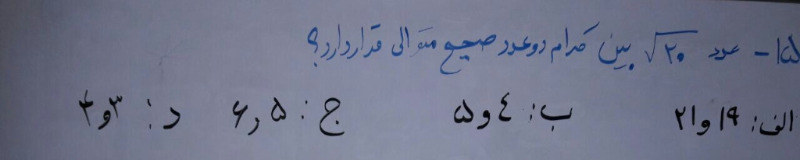 ۱۵- عدد √۲۰ بین کدام دو عدد صحیح متوالی قرار دارد؟
الف: ۱۹ و ۲۱ ب: ۴ و ۵ ج: ۵ و ۶ د: ۳ و ۴